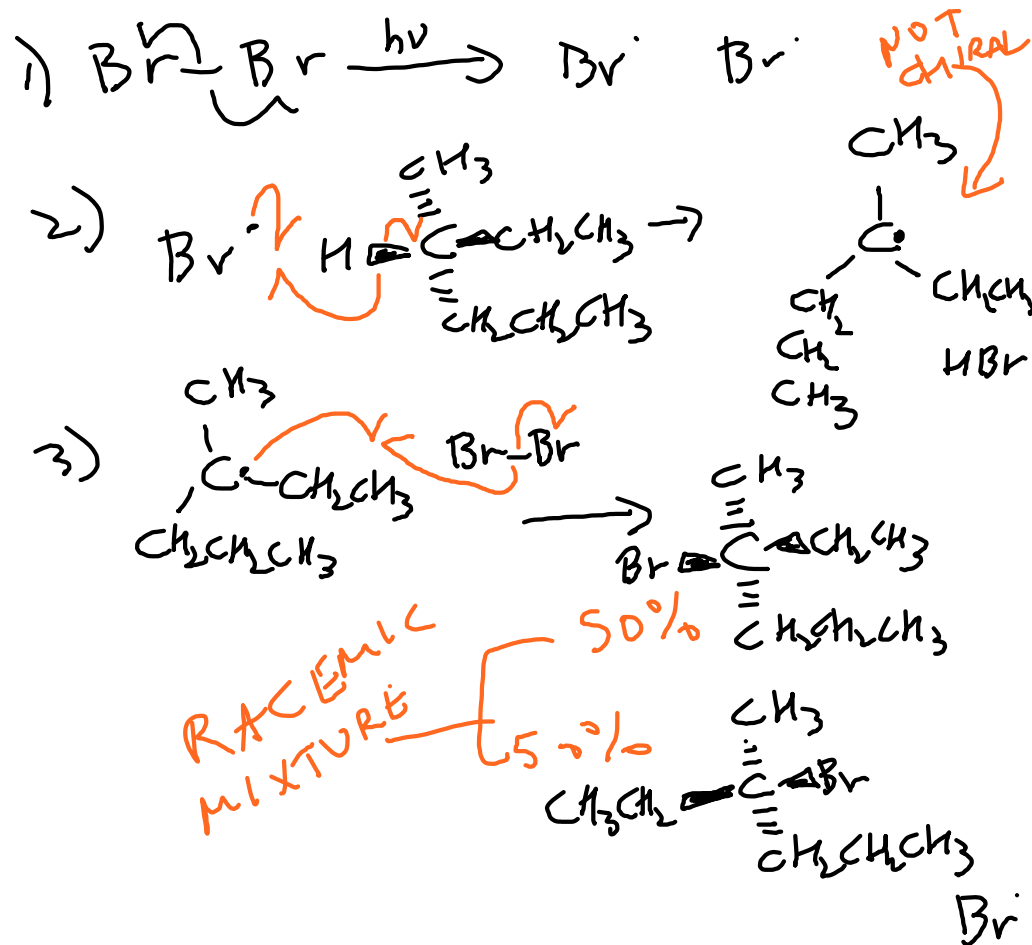 1) Br—Br hν Br· Br·
NOT CHIRAL
CH3
2) Br· H C CH2CH3
CH3
CH2CH2CH3
CH3
C·
CH2
CH2
CH3
CH2CH3
HBr
3) CH3
C· CH2CH3
CH2CH2CH3
Br—Br
CH3
Br C CH2CH3
CH2CH2CH3
RACEMIC
MIXTURE
50%
50%
CH3
CH3CH2 C Br
CH2CH2CH3
Br·